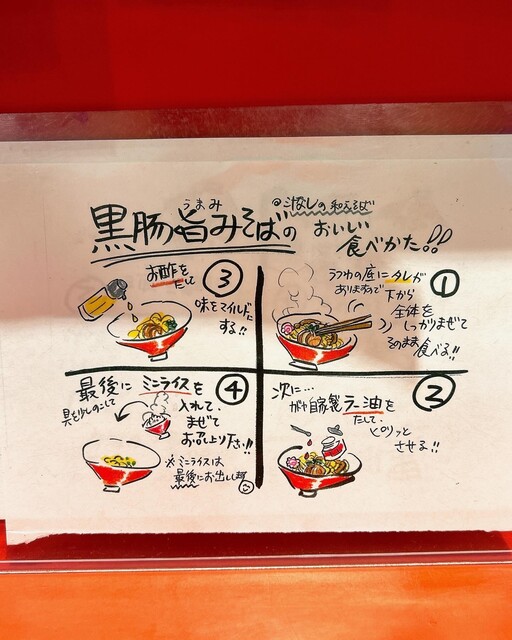 うまみ
黒豚旨みそばの
◎汁なしの和えそば
おいしい
食べかた!!
①
うつわの底にタレが
おりますので
下から
全体を
しっかりまぜて
そのまま
食べる!!
②
次に…
自家製ラー油を
たして、
ピリッと
させる!!
③
お酢を
たして
味をマイルドに
する!!
④
最後に ミニライスを
具を少しのこして
入れて、
まぜて
お召し上り下さい!!
※ミニライスは
最後にお出しします